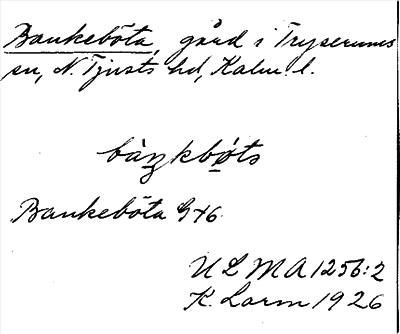 Bankeböta, gård i Tryserums
sn, N. Tjusts hd, Kalm. l.
bàŋkbø̀ts
Bankeböta G+6
ULMA 1256:2
K. Lorm 1926